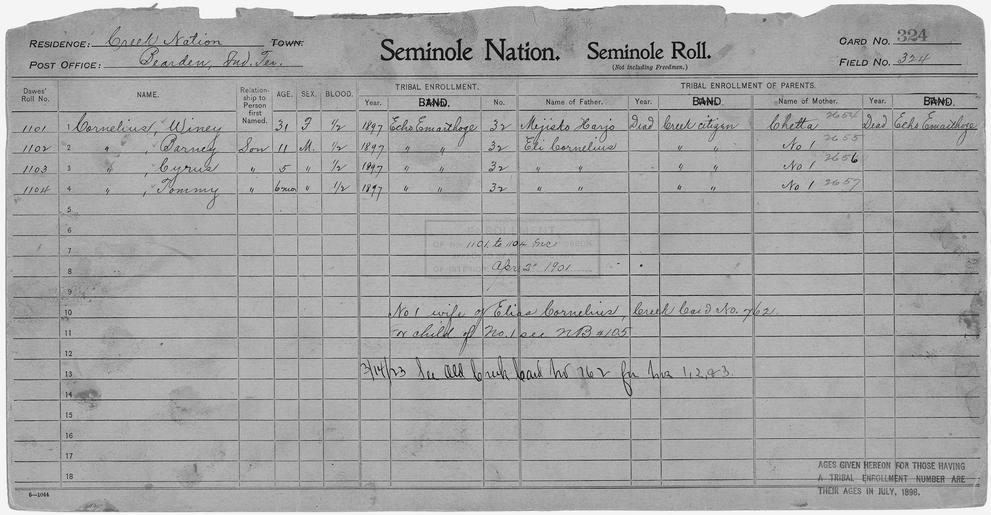 RESIDENCE: Creek Nation TOWN.
POST OFFICE: Bearden, Ind. Ter.
Seminole Nation. Seminole Roll.
(Not including Freedmen.)
CARD NO. 324
FIELD NO. 324
Dawes' Roll No. NAME. Relationship to Person first Named. AGE. SEX. BLOOD. TRIBAL ENROLLMENT. TRIBAL ENROLLMENT OF PARENTS.
Year. BAND. No. Name of Father. Year. BAND. Name of Mother. Year. BAND.
1101 1 Cornelius, Winey 31 F 1/2 1897 Echo Emarthoge 32 Mijisto Harjo Dead Creek citizen Chetta 2654 Dead Echo Emarthoge
1102 2 " , Barney Son 11 M. 1/2 1897 " " 32 Eli Cornelius " " No 1 2655
1103 3 " , Cyrus " 5 " 1/2 1897 " " 32 " " " " No 1 2656
1104 4 " , Tommy " 6mo " 1/2 1897 " " 32 " " " " No 1 2657
5
6
ENROLLMENT
7 1101 to 1104 Inc
8 Apr 2" 1901
9
10 No 1 wife of Elias Cornelius, Creek Card No. 762.
11 For child of No. 1 see NB #105
12
13 3/14/23 See Old Creek Card No 762 for Nos 1, 2, & 3.
14
15
16
17
18
6—1044
AGES GIVEN HEREON FOR THOSE HAVING
A TRIBAL ENROLLMENT NUMBER ARE
THEIR AGES IN JULY, 1898.